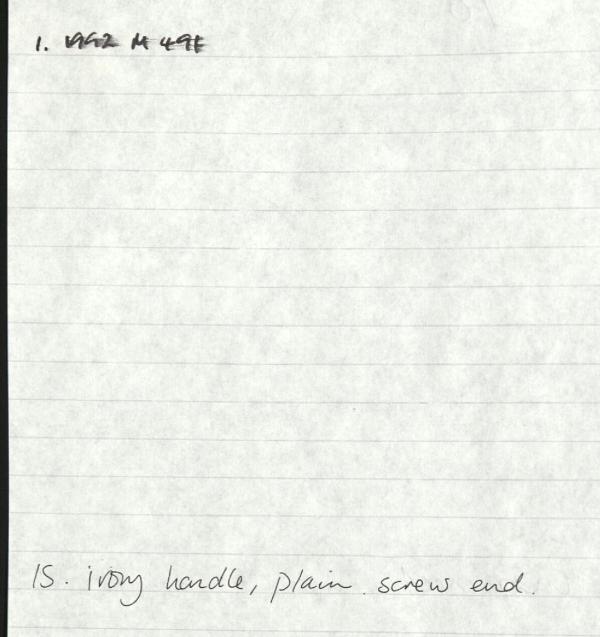 1. 1992 M 49E
15. ivory handle, plain. screw end.